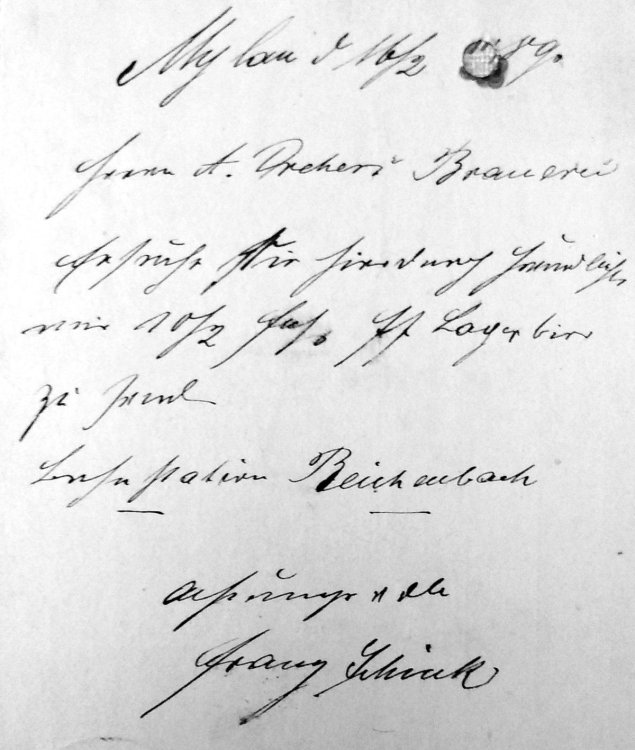 Mylau d 16/2 89.
Herrn A. Drehers Brauerei
Ersuche Sie hierdurch freundlichst
mir 10/2 Fass ff Lagerbier
zu send
Bahnstation Reichenbach
Achtungsvoll
Franz Schink